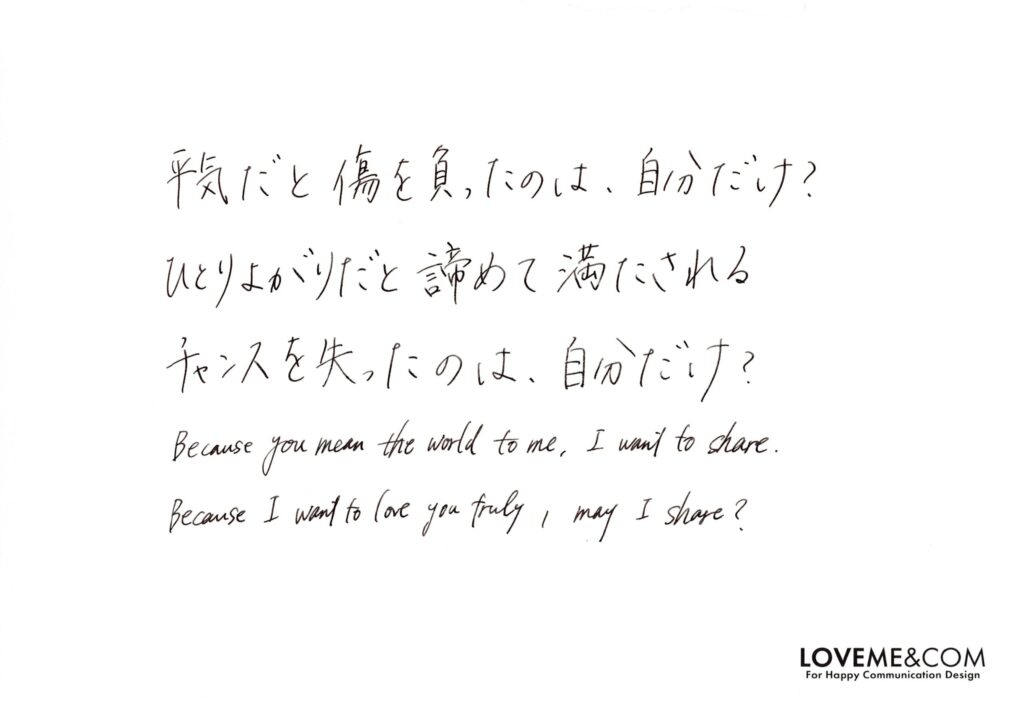 平気だと傷を負ったのは、自分だけ?
ひとりよがりだと諦めて満たされる
チャンスを失ったのは、自分だけ?
Because you mean the world to me, I want to share.
Because I want to love you truly, may I share?
LOVEME&COM
For Happy Communication Design